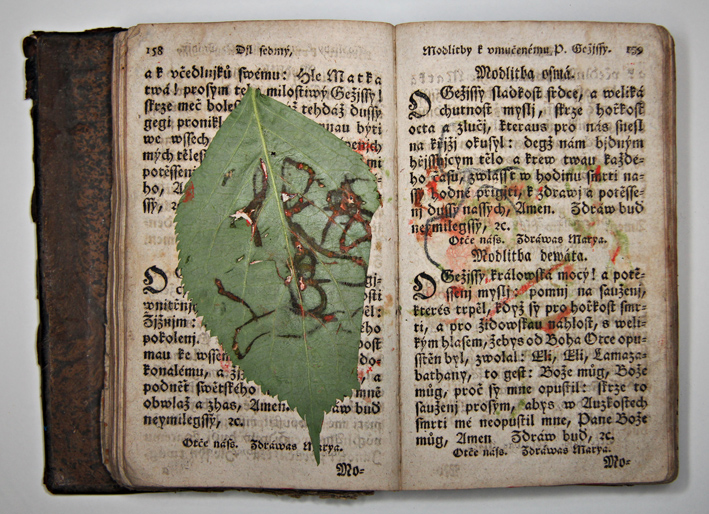 158 Djl sedmý,
ak včedlnjků swému: Hle Matka
twá! prosym tě milostiwý Gežjssy!
skrze meč boles tehdáž dussy
gegi pronikl
we wssech
mých těles
potěssen
ho, A
ssy,
O
wnitřnj
Zžjznjm:
pokolenj.
mau ke wssem
konalému, a
podnět swětského
obwlaž a zhas, Amen. Zdráw buď
neymilegssy, ꝛc.
Otče náss. Zdráwas Marya.
Mo-
Modlitby k vmučenému P. Gežjssy. 159
Modlitba osmá.
O Gežjssy sladkost srdce, a weliká
chutnost mysli, skrze hořkost
octa a žluči, kteraus pro nás snesl
na křjži okusyl: degž nám bjdným
hřjssnjcym tělo a krew twau každé-
ho času, zwlásst w hodinu smrti na-
ssy hodně přigjti, k zdrawj a potěsse-
nj dussy nassych, Amen. Zdráw buď
neymilegssy, ꝛc.
Otče náss. Zdráwas Marya.
Modlitba dewátá.
O Gežjssy králowská mocy! a potě-
ssenj mysli: pomni na sauženj,
kterés trpěl, když sy pro hořkost smr-
ti, a pro židowskau náhlost, s weli-
kým hlasem, žebys od Boha Otce opu-
sstěn byl, zwolal: Eli, Eli, Lamaza-
bathany, to gest: Bože můg, Bože
můg, proč sy mne opustil: skrze to
sauženj prosym, abys w Auzkostech
smrti mé neopustil mne, Pane Bože
můg, Amen Zdráw buď, ꝛc.
Otče náss. Zdráwas Marya.
Mo-